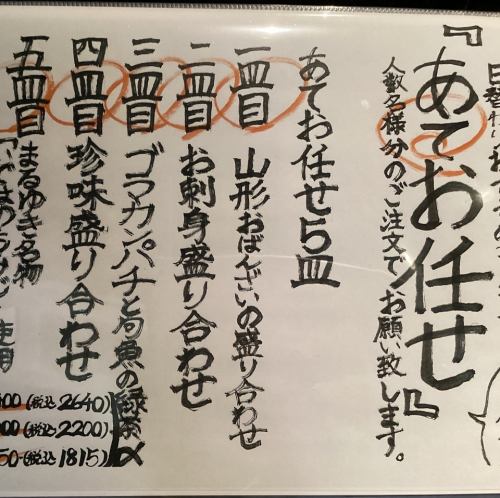 『あてお任せ』
人数名様分のご注文でお願い致します。
あてお任せ5皿
一皿目 山形おばんざいの盛り合わせ
二皿目 お刺身盛り合わせ
三皿目 ゴマカンパチと旬魚の緑茶〆
四皿目 珍味盛り合わせ
五皿目 まるゆき名物
使用
400(税込2640)
000(税込2200)
50(税込1815)